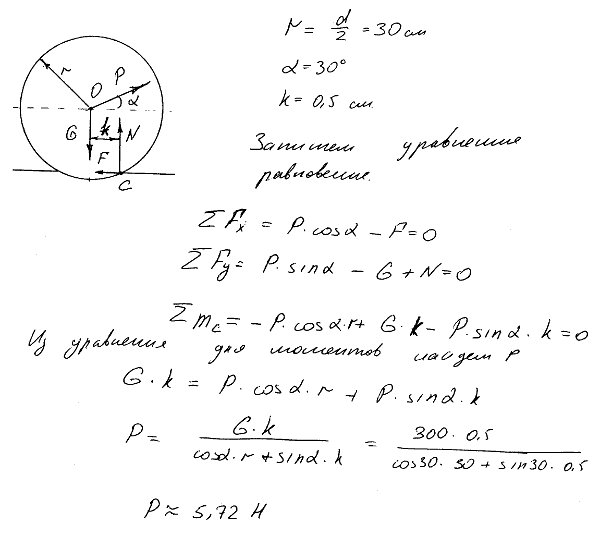 r = d/2 = 30 см
α = 30°
k = 0,5 см.
Запишем уравнение
равновесие.
r
P
O
α
G
k
N
F
C
ΣFx = P·cosα − F = 0
ΣFy = P·sinα − G + N = 0
Σmc = − P·cosα·r + G·k − P·sinα·k = 0
Из уравнения для моментов найдем P
G·k = P·cosα·r + P·sinα·k
P = G·k / cosα·r + sinα·k = 300·0,5 / cos30·30 + sin30·0,5
P ≈ 5,72 Н